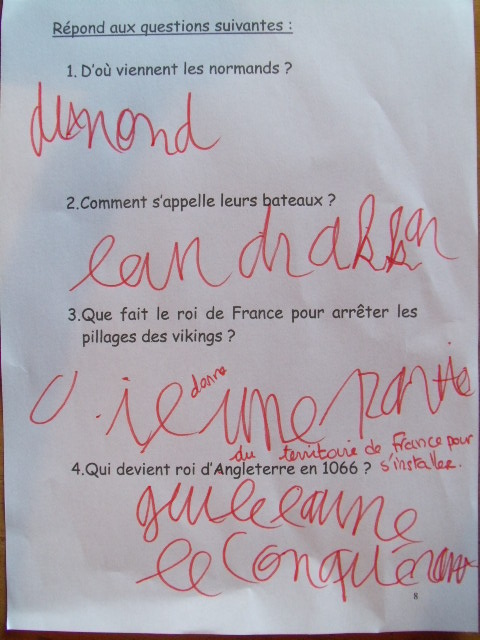 Répond aux questions suivantes :
1. D'où viennent les normands ?
du nond
2.Comment s'appelle leurs bateaux ?
lean drakkar
3.Que fait le roi de France pour arrêter les
pillages des vikings ?
donne
une partie
du territoire de France pour
s'installer.
4.Qui devient roi d'Angleterre en 1066 ?
guilleaume
le Conquérant
8